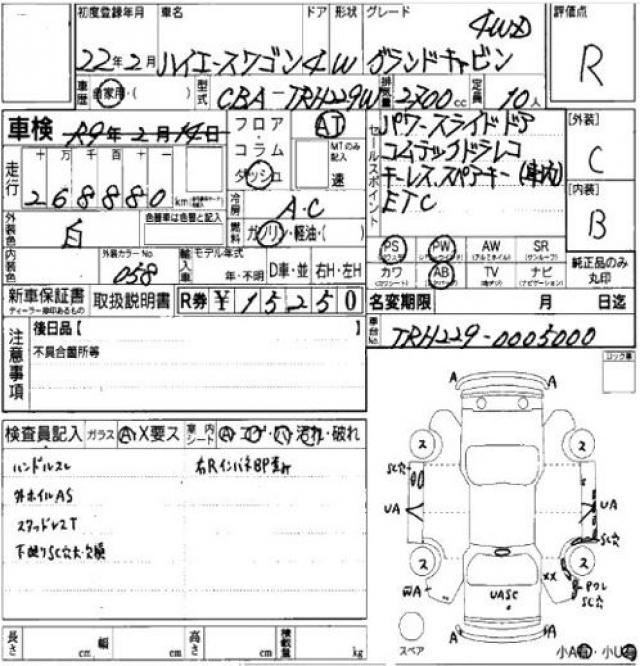 初度登録年月 車名 ドア 形状 グレード 評価点
22年2月 ハイエースワゴン 4 W グランドキャビン 4WD R
車歴 自家用・( ) 型式 CBA-TRH229W 排気量 2700cc 定員 10人
車検 R9年2月14日
フロア・コラム・ダッシュ AT MTのみ記入 速
セールスポイント
パワースライドドア
コムテックドラレコ
キーレス.スペアキー(車内)
ETC
[外装] C
[内装] B
走行 十 万 千 百 十 一
268880 km
冷房 A・C
外装色 白 色替車は色替と記入
燃料 ガソリン・軽油・( )
PS PW AW SR
(パワステ) (パワーウィンドウ) (アルミホイル) (サンルーフ)
カワ AB TV ナビ
(カワシート) (エアーバッグ) (地デジ) (ナビゲーション)
純正品のみ丸印
内装色 外装カラーNo. 058
輸入車 モデル年式 年・不明 D車・並 右H・左H
新車保証書 取扱説明書 R券 ¥15250
ディーラー捺印あるもの
名変期限 月 日迄
車台No. TRH229-0005000
注意事項
後日品【
不具合箇所等
コック車
検査員記入 ガラス A・X要ス 室内シート A・コゲ・穴・汚れ・破れ
ハンドルスレ
外ホイルAS
スタッドレスT
右RインパネBP
A A
2 2
SC穴
UA UA
SC穴
2 2
UASC
XX
SC穴
スペア
A A
長さ cm 幅 cm 高さ cm 積載量 kg
小A有・小U有